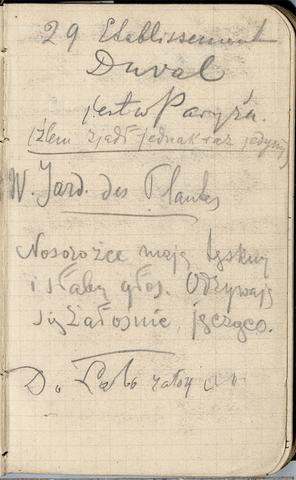 29 Etablissement
Duval
jest w Paryżu.
zjadł jednak raz jedyny
W. Jard. des Plantes
Nosorożce mają
i słaby głos. Odzywają
się żałośnie, jęcząco.
Do